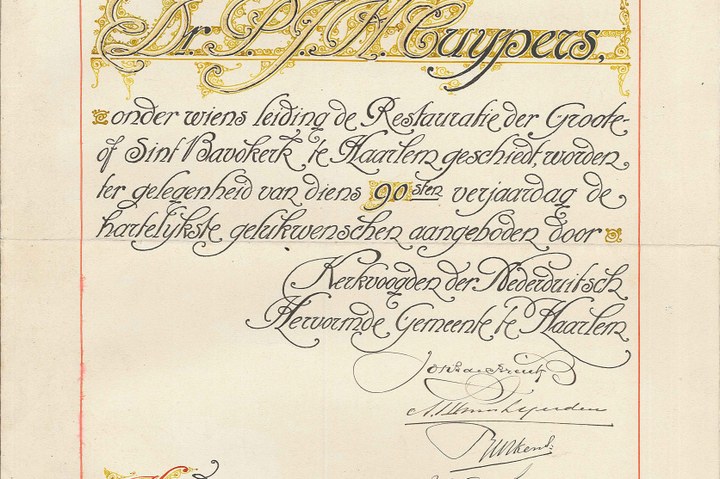 Dr. P.J.H. Cuypers,
onder wiens leiding de Restauratie der Groote-
of Sint Bavokerk te Haarlem geschiedt, worden
ter gelegenheid van diens 90sten verjaardag de
hartelijkste gelukwenschen aangeboden door
Kerkvoogden der Nederduitsch
Hervormde Gemeente te Haarlem